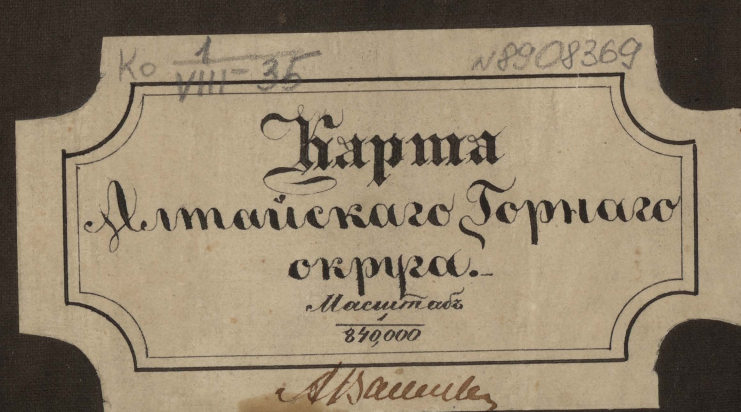 Ко 1/VIII-35 N8908369
Карта
Алтайскаго Горнаго
округа.
Масштабъ
1
840,000